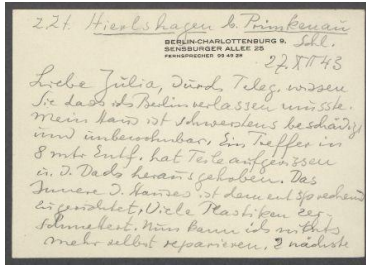 z.Zt. Hierlshagen b. Primkenau
Schl.
BERLIN-CHARLOTTENBURG 9,
SENSBURGER ALLEE 25
FERNSPRECHER 99 46 29
27.XII 43
Liebe Julia, durch Teleg. wissen
Sie dass ich Berlin verlassen musste.
Mein Haus ist schwerstens beschädigt
und unbewohnbar. Ein Treffer in
8 mtr Entf. hat Teile aufgerissen
u. d. Dach herausgehoben. Das
Innere d. Hauses ist dementsprechend
zugerichtet. Viele Plastiken zer-
schmettert. Nun kann ich nichts
mehr selbst reparieren. 2 nächste